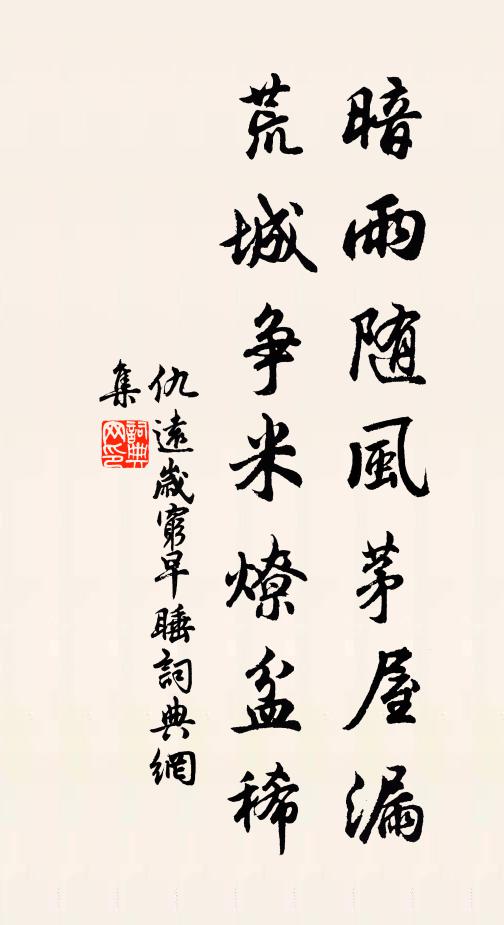 暗雨随風茅屋漏
荒城争米燎盆稀
仇遠歲窮早睡詞典網
集
詞典
网印